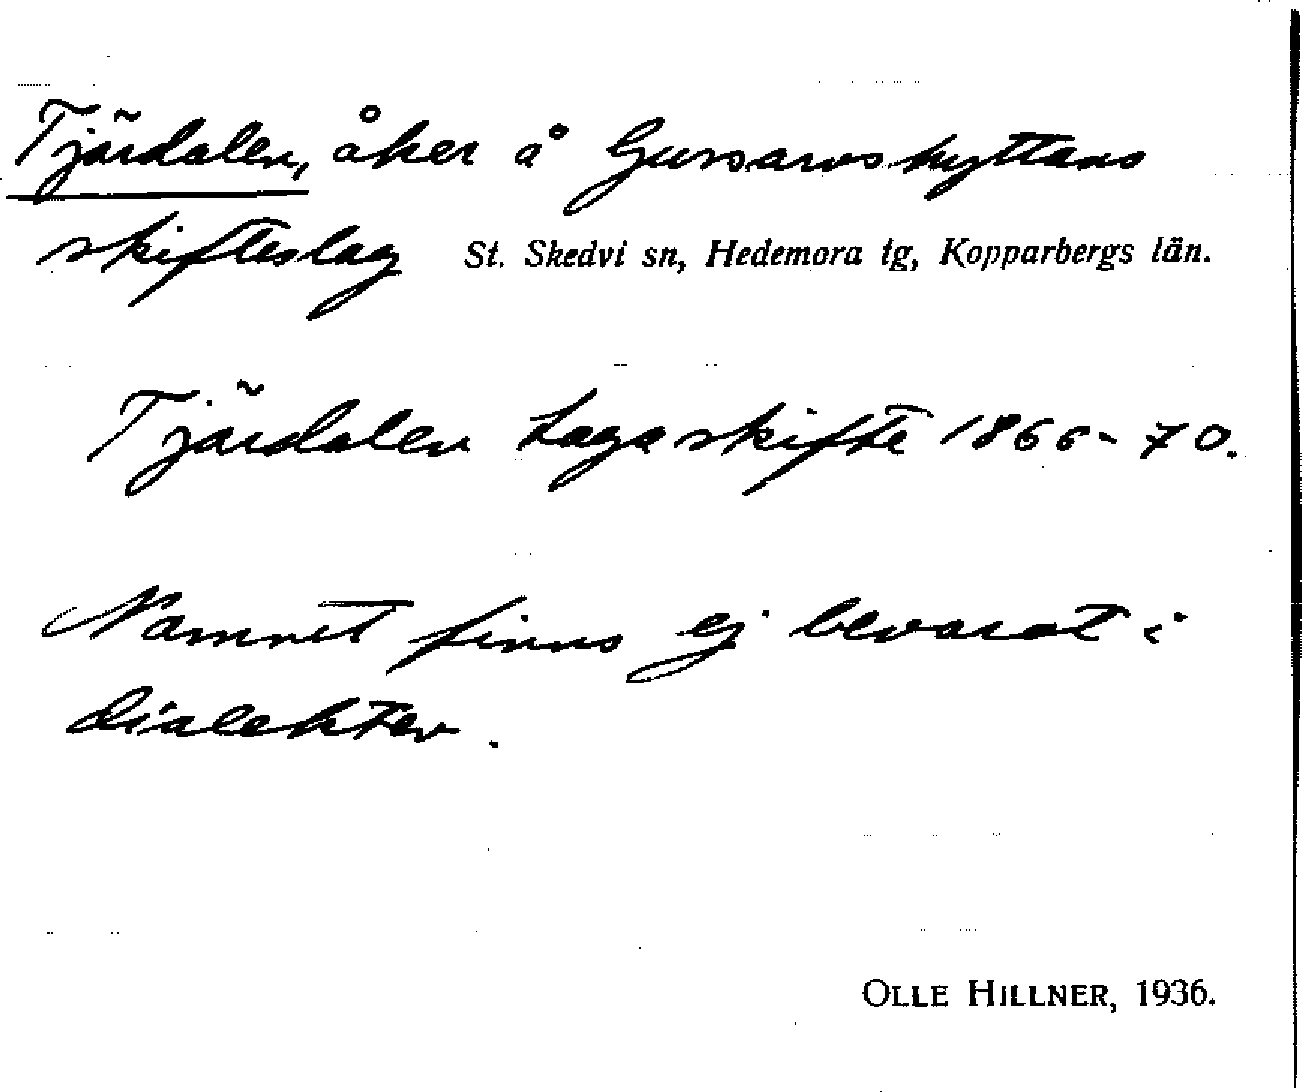 Tjärdalen, åker å Gussarvshyttans
skifteslag St. Skedvi sn, Hedemora tg, Kopparbergs län.
Tjärdalen Laga skifte 1866-70.
Namnet finns ej bevarat i
dialekten.
OLLE HILLNER, 1936.